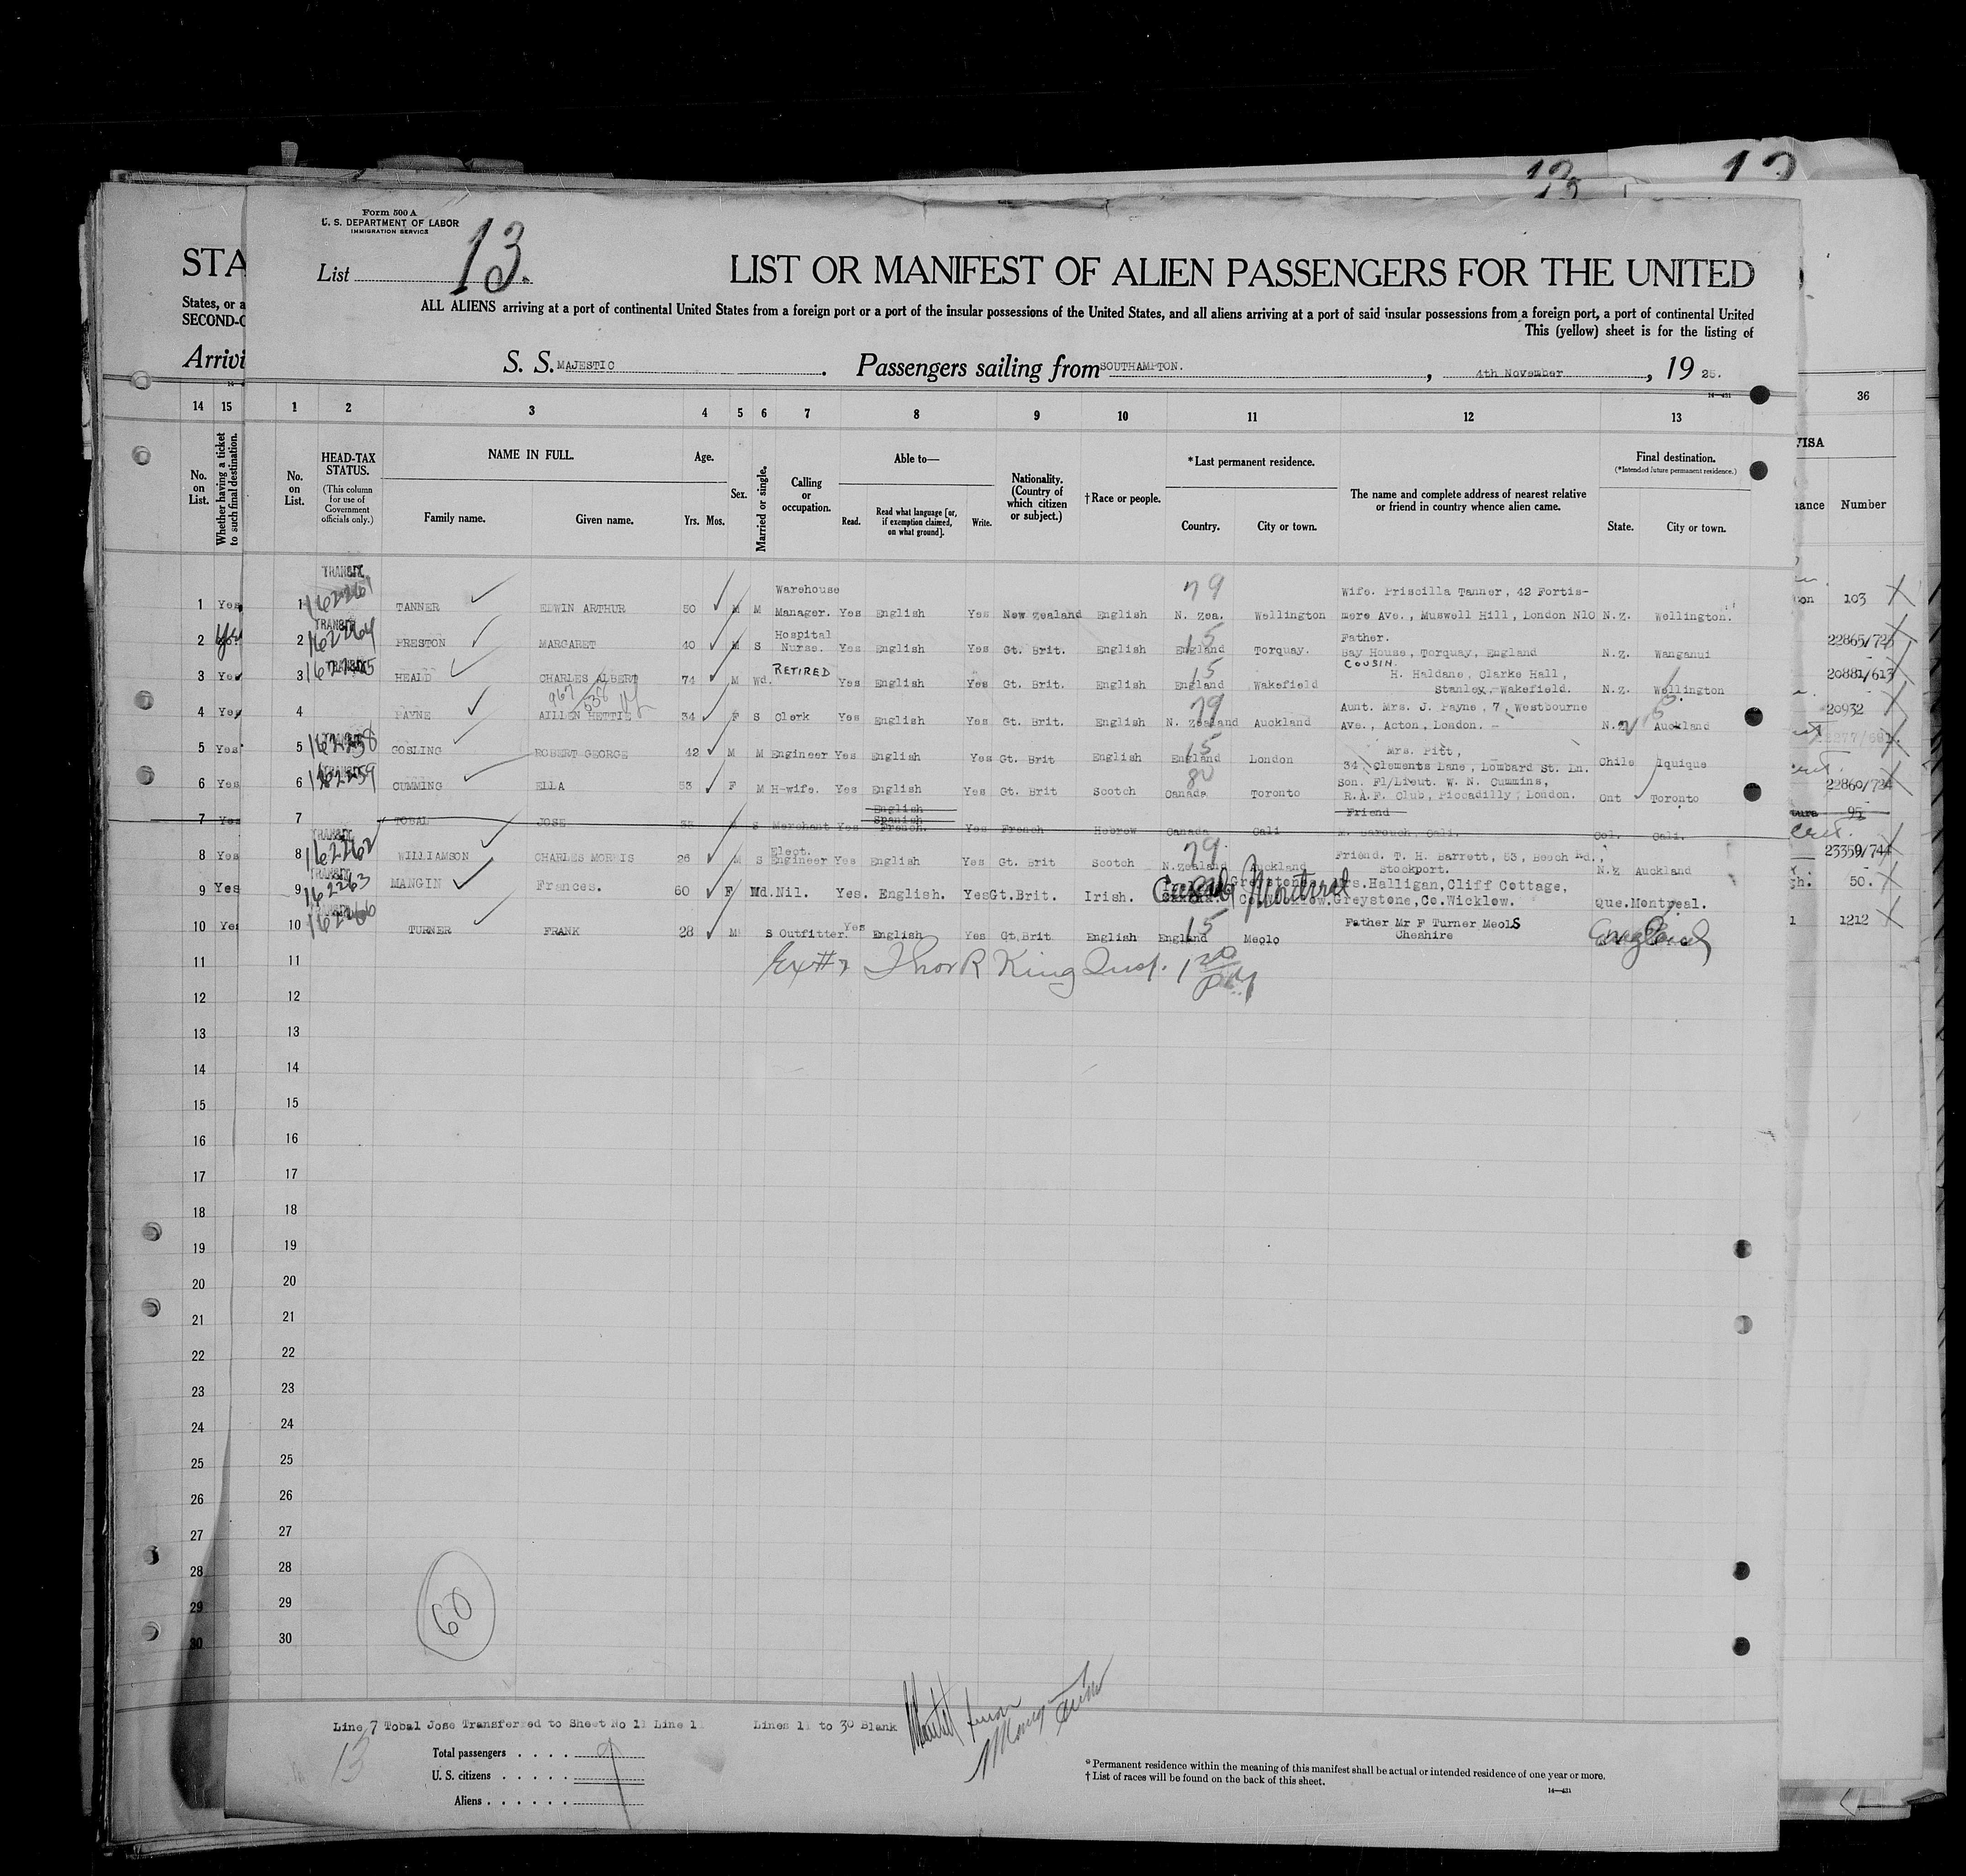 13
13
12
Form 500 A
U. S. DEPARTMENT OF LABOR
IMMIGRATION SERVICE
List 13.
STA
LIST OR MANIFEST OF ALIEN PASSENGERS FOR THE UNITED
States, or a
SECOND-C
ALL ALIENS arriving at a port of continental United States from a foreign port or a port of the insular possessions of the United States, and all aliens arriving at a port of said insular possessions from a foreign port, a port of continental United
This (yellow) sheet is for the listing of
Arrivi
S. S. MAJESTIC. Passengers sailing from SOUTHAMPTON., 4th November, 19 25.
14—431
14 15 1 2 3 4 5 6 7 8 9 10 11 12 13 36
VISA
No. on List. Whether having a ticket to such final destination. No. on List. HEAD-TAX STATUS. (This column for use of Government officials only.) NAME IN FULL. Family name. Given name. Age. Yrs. Mos. Sex. Married or single. Calling or occupation. Able to— Read. Read what language [or, if exemption claimed, on what ground]. Write. Nationality. (Country of which citizen or subject.) †Race or people. *Last permanent residence. Country. City or town. The name and complete address of nearest relative or friend in country whence alien came. Final destination. (*Intended future permanent residence.) State. City or town. uance Number
TRANSIT
Warehouse 79 Wife. Priscilla Tanner, 42 Fortis-
1 Yes 1 TANNER EDWIN ARTHUR 50 M M Manager. Yes English Yes New Zealand English N. Zea. Wellington mere Ave., Muswell Hill, London N10 N.Z. Wellington. 103
TRANSIT Hospital 15 Father.
2 Yes 2 162264 PRESTON MARGARET 40 M S Nurse. Yes English Yes Gt. Brit. English England Torquay. Bay House, Torquay, England N.Z. Wanganui
RETIRED 15 COUSIN.
3 Yes 3 162265 HEALD CHARLES ALBERT 74 M Wd. Yes English Yes Gt. Brit. English England Wakefield H. Haldane, Clarke Hall,
Stanley. Wakefield. N.Z. Wellington 20881/613
967/538
79 Aunt. Mrs. J. Payne, 7, Westbourne
4 Yes 4 PAYNE AILLEN HETTIE 34 F S Clerk Yes English Yes Gt. Brit. English N. Zealand Auckland Ave., Acton, London. - N.Z Auckland 20932
15 Mrs. Pitt,
5 Yes 5 162258 GOSLING ROBERT GEORGE 42 M M Engineer Yes English Yes Gt. Brit English England London 34, Clements Lane, Lombard St. Ln. Chile Iquique
80 Son. Fl/Lieut. W. N. Cummins,
6 Yes 6 162259 CUMMING ELLA 53 F M H-wife. Yes English Yes Gt. Brit Scotch Canada Toronto R.A.F. Club, Piccadilly, London. Ont Toronto 22860/724
English Spanish Friend
7 Yes 7 TOBAL JOSE 35 S Merchant Yes French. Yes French Hebrew Canada Cali M. Barouch, Cali. Col. Cali. 95
TRANSIT Elect. 79 Friend. T. H. Barrett, 53, Beech Rd.,
8 Yes 8 162262 WILLIAMSON CHARLES MORRIS 26 M S Engineer Yes English Yes Gt. Brit Scotch N.Zealand Auckland Stockport. N.Z Auckland 23359/744
TRANSIT
9 Yes 9 162263 MANGIN Frances. 60 F Wd. Nil. Yes. English. Yes Gt.Brit. Irish. Canada Montreal Greystone Co.Wicklow. Mrs.Halligan,Cliff Cottage,
Greystone,Co.Wicklow. Que.Montreal. 50.
10 Yes 10 162266 TURNER FRANK 28 M S Outfitter. Yes English Yes Gt.Brit English 15 England Meolo Father Mr F Turner MeolS
Cheshire England 1212
11 11 Ex#7 Thos R King Insp. 1 20 PM
12 12
13 13
14 14
15 15
16 16
17 17
18 18
19 19
20 20
21 21
22 22
23 23
24 24
25 25
26 26
27 27
28 28
29 29
30 30
60
Line 7 Tobal Jose Transferred to Sheet No 11 Line 1 Lines 11 to 30 Blank
13
Total passengers . . . . 9
U. S. citizens . . . . .
Aliens . . . . . .
* Permanent residence within the meaning of this manifest shall be actual or intended residence of one year or more.
† List of races will be found on the back of this sheet.
14—431